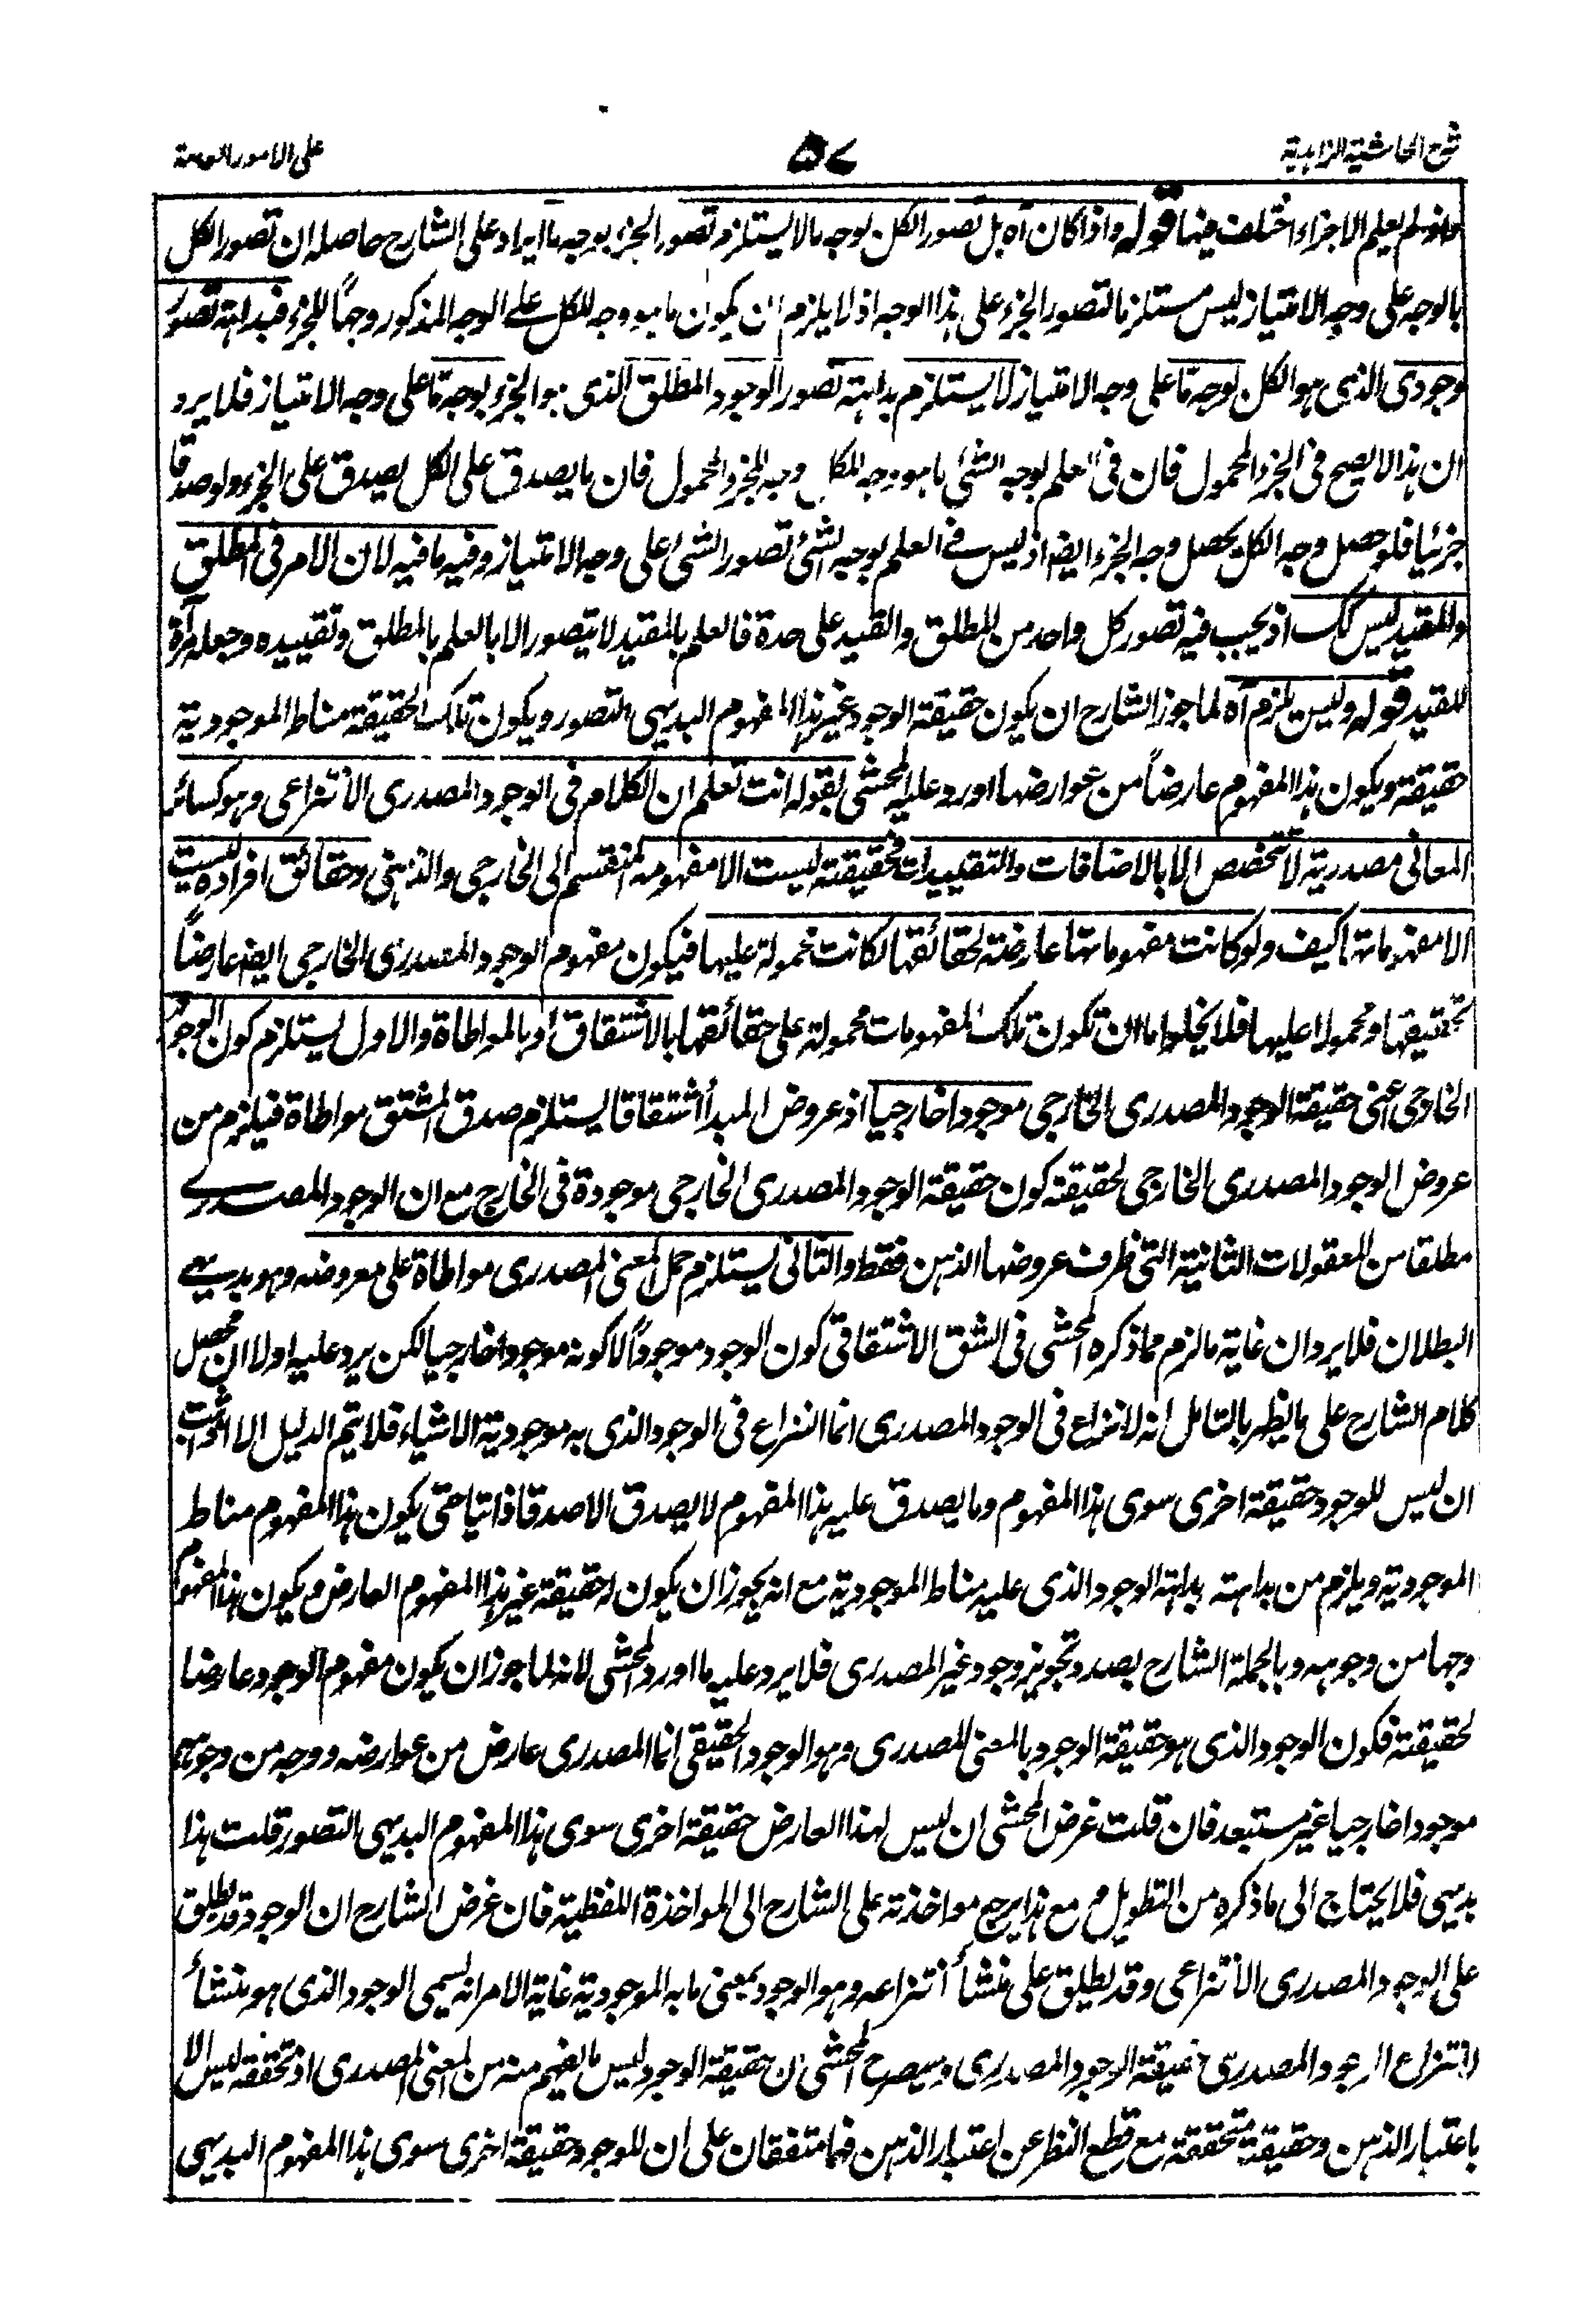 شرح الحاشية الزاهدية
٥٧
على الامور العامة
ولو لم يعلم الاجزاء اختلف فيها قوله واذا كان اه بل تصور الكل بوجه ما لا يستلزم تصور الجزء بوجه ما ايراد على الشارح حاصله ان تصور الكل
بالوجه على وجه الامتياز ليس مستلزما لتصور الجزء على هذا الوجه اذ لا يلزم ان يكون ما هو وجه للكل على الوجه المذكور وجهًا للجزء فبداهة تصور
وجودى الذى هو الكل بوجه ما على وجه الامتياز لا يستلزم بداهة تصور الوجود المطلق الذى هو الجزء بوجه ما على وجه الامتياز فلا يرد
ان هذا لا يصح فى الجزء المحمول فان فى العلم بوجه الشئ ما هو وجه للكل وجه للجزء المحمول فان ما يصدق على الكل يصدق على الجزء ولو صدقا
جزئيا فلو حصل وجه الكل يحصل وجه الجزء ايضا اذ ليس فى العلم بوجه الشئ تصور الشئ على وجه الامتياز وفيه ما فيه لان الامر فى المطلق
والمقيد ليس كك اذ يجب فيه تصور كل واحد من المطلق والقيد على حدة فالعلم بالمقيد لا يتصور الا بالعلم بالمطلق وتقييده وجعله مرآة
للمقيد قوله وليس يلزم اه لما جوز الشارح ان يكون حقيقة الوجود غير هذا المفهوم البديهى التصور ويكون تلك الحقيقة مناط الموجودية
حقيقة ويكون هذا المفهوم عارضاً من عوارضها اورد عليه المحشى بقوله انت تعلم ان الكلام فى الوجود المصدرى الانتزاعى وهو كسائر
المعانى مصدرية لا تتحصص الا بالاضافات والتقييدات فحقيقته ليست الا مفهومه المنقسم الى الخارجى والذهنى وحقائق افراده ليست
الا مفهوماتها كيف ولو كانت مفهوماتها عارضة لحقائقها لكانت محمولة عليها فيكون مفهوم الوجود المصدرى الخارجى ايضا عارضاً
لحقيقتها ومحمولا عليها فلا يخلوا ما ان تكون تلك المفهومات محمولة على حقائقها بالاشتقاق او بالمواطاة والاول يستلزم كون الوجود
الخارجى اعنى حقيقة الوجود المصدرى الخارجى موجودا خارجيا اذ عروض المبدأ اشتقاقا يستلزم صدق المشتق مواطاة فيلزم من
عروض الوجود المصدرى الخارجى لحقيقته كون حقيقة الوجود المصدرى الخارجى موجودة فى الخارج مع ان الوجود المصدرى
مطلقا من المعقولات الثانية التى ظرف عروضها الذهن فقط والثانى يستلزم حمل المعنى المصدرى مواطاة على معروضه وهو بديهى
البطلان فلا يرد ان غاية ما لزم مما ذكره المحشى فى الشق الاشتقاقى كون الوجود موجوداً لا كونه موجودا خارجيا لكن يرد عليه اولا ان محصل
كلام الشارح على ما يظهر بالتامل انه لا نزاع فى الوجود المصدرى انما النزاع فى الوجود الذى به موجودية الاشياء فلا يتم الدليل الا اذا ثبت
ان ليس للوجود حقيقة اخرى سوى هذا المفهوم وما يصدق عليه هذا المفهوم لا يصدق الا صدقا ذاتيا حتى يكون هذا المفهوم مناط
الموجودية ويلزم من بداهته بداهة الوجود الذى عليه مناط الموجودية مع انه يجوز ان يكون له حقيقة غير هذا المفهوم العارض ويكون هذا المفهوم
وجها من وجوهه وبالجملة الشارح بصدد تجويز وجود غير المصدرى فلا يرد عليه ما اورد المحشى لانه لما جوز ان يكون مفهوم الوجود عارضا
لحقيقته فكون الوجود الذى هو حقيقة الوجود بالمعنى المصدرى وهو الوجود الحقيقى انما المصدرى عارض من عوارضه ووجه من وجوهه
موجودا خارجيا غير مستبعد فان قلت غرض المحشى ان ليس لهذا العارض حقيقة اخرى سوى هذا المفهوم البديهى التصور قلت هذا
بديهى فلا يحتاج الى ما ذكره من التطويل مع هذا يرجع مواخذته على الشارح الى المواخذة اللفظية فان غرض الشارح ان الوجود قد يطلق
على الوجود المصدرى الانتزاعى وقد يطلق على منشأ انتزاعه وهو الوجود بمعنى ما به الموجودية غاية الامر انه يسمى الوجود الذى هو منشأ
لانتزاع الوجود المصدرى حقيقة الوجود المصدرى وسيصرح المحشى ان حقيقة الوجود ليس ما يفهم منه من المعنى المصدرى اذ تحققه ليس الا
باعتبار الذهن وحقيقة متحققة مع قطع النظر عن اعتبار الذهن فهما متفقان على ان للوجود حقيقة اخرى سوى هذا المفهوم البديهى